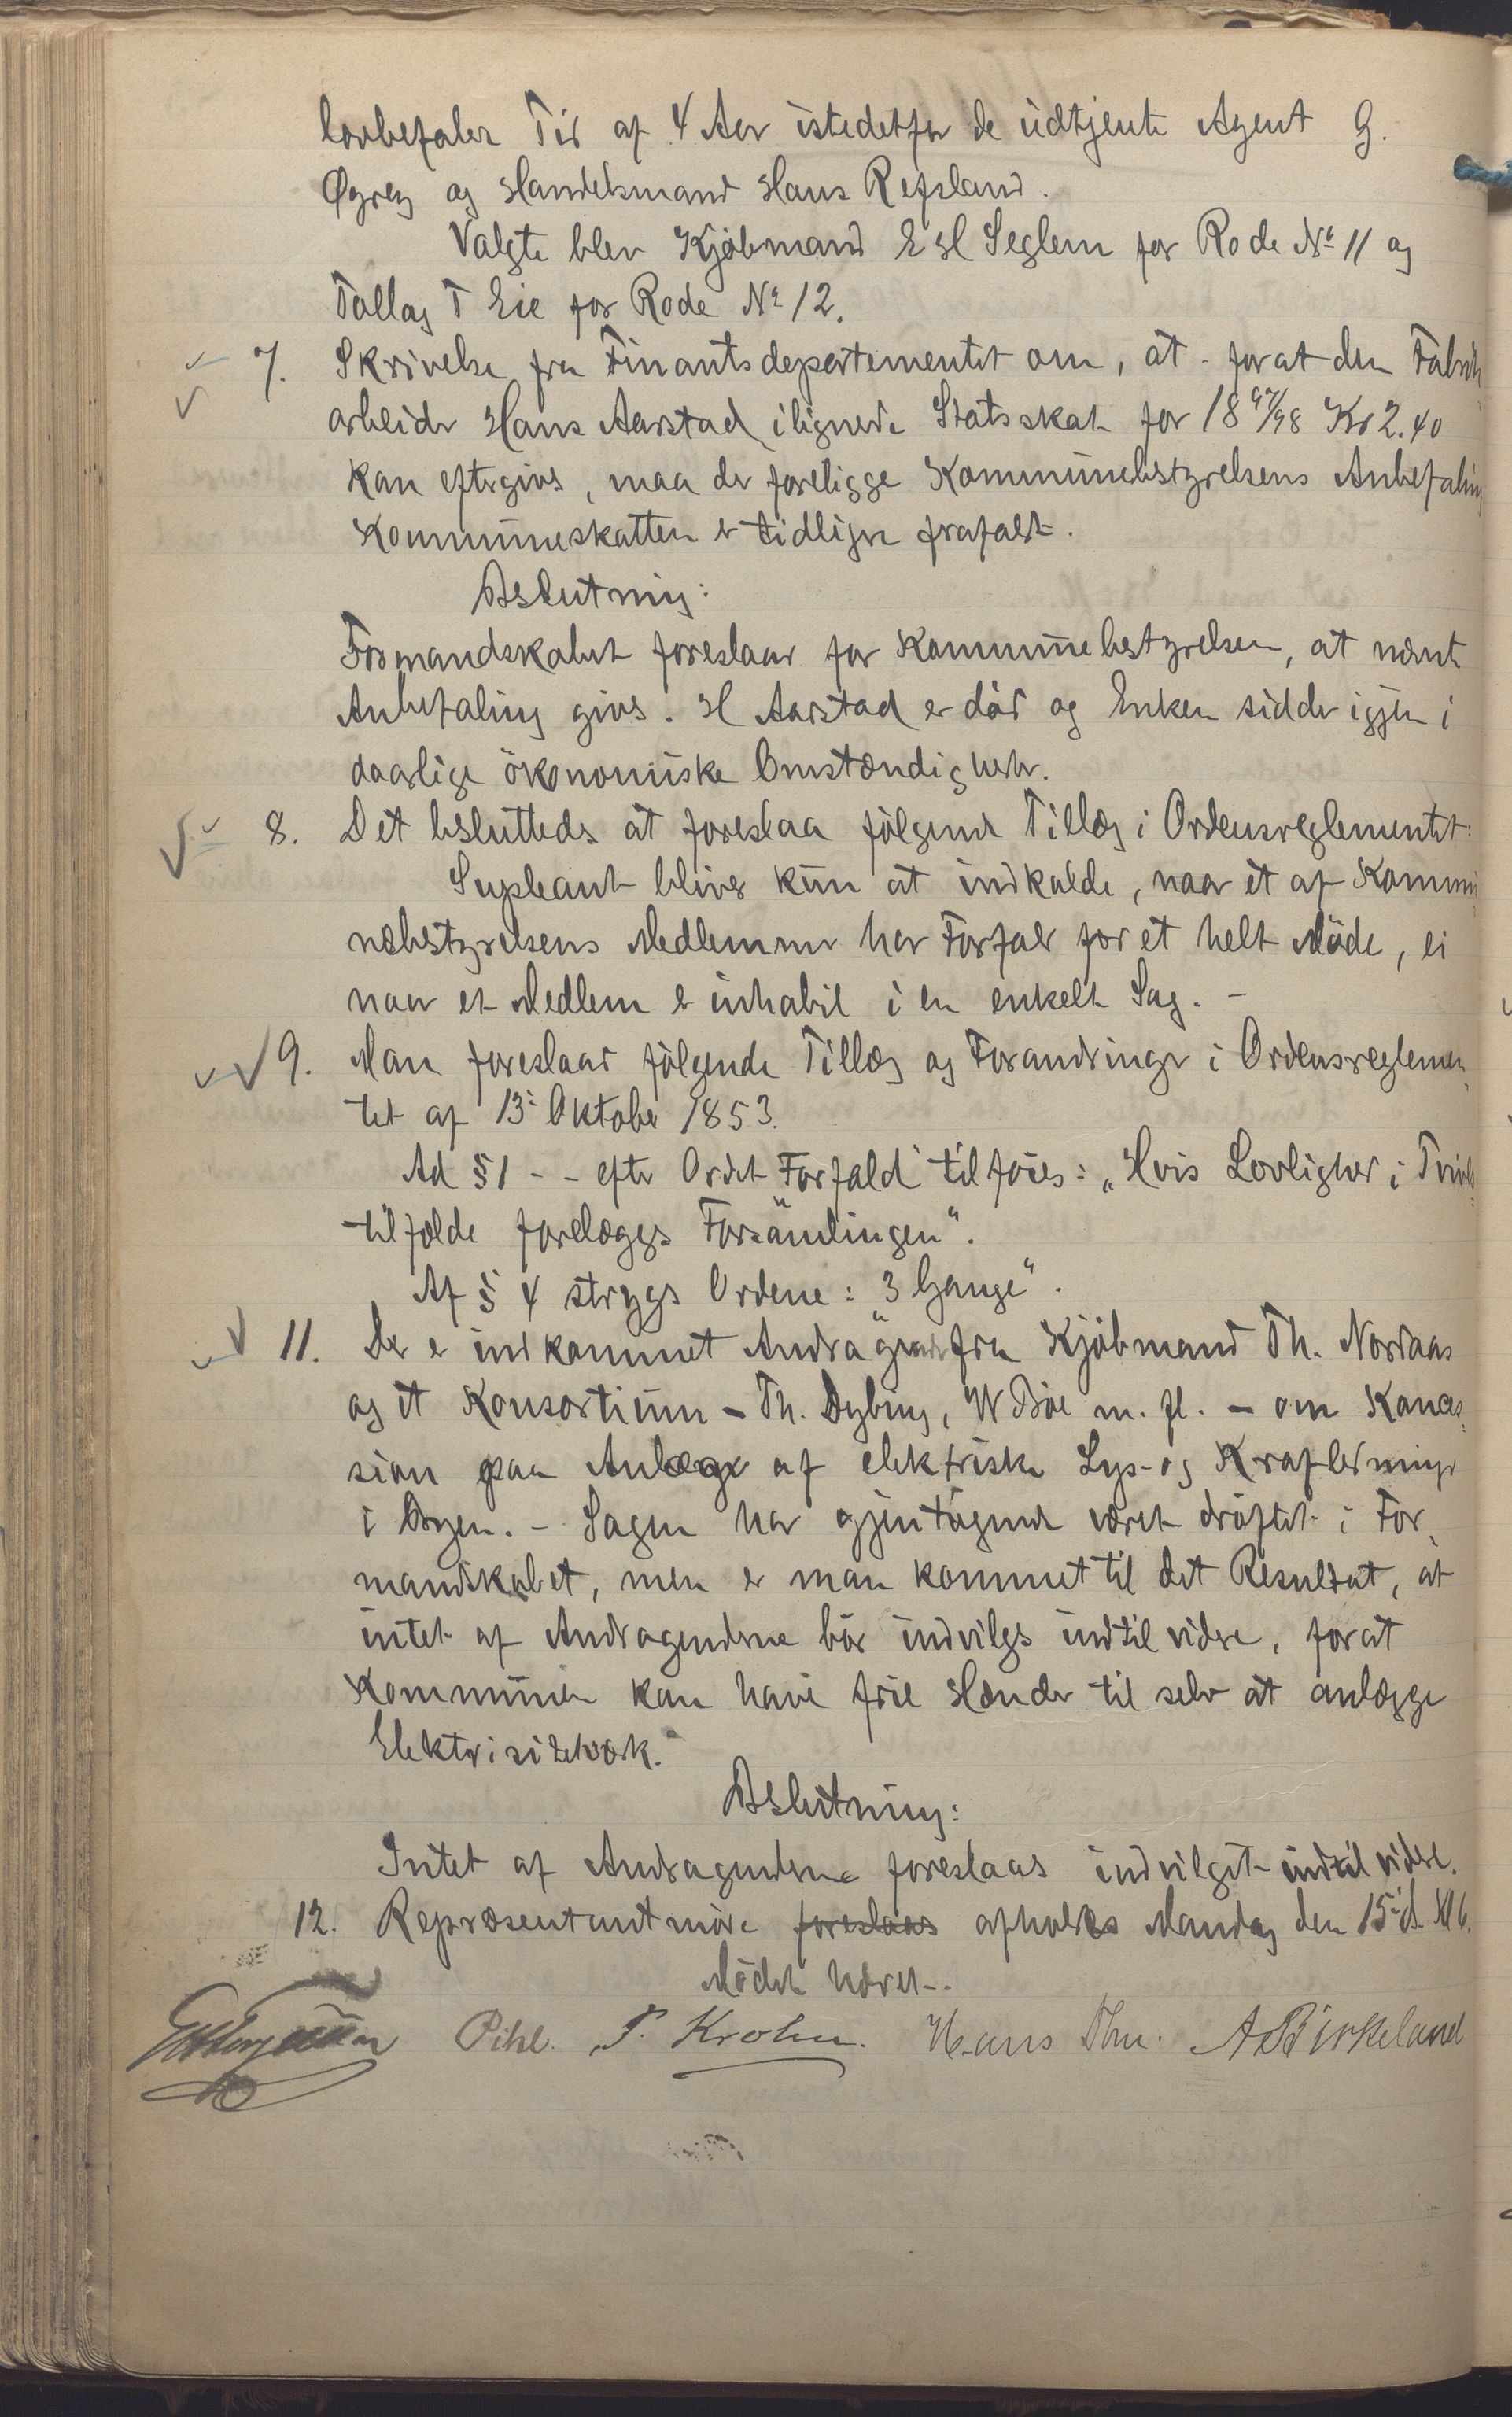 lovbefalede Tid af 4 Aar istedetfor de udtjente Agent G.
Øgrey og Handelsmand Hans Refsland.
Valgte blev Kjøbmand E H Seglem for Rode No 11 og
Tallag T Eie for Rode No 12.
7. Skrivelse fra Finantsdepartementet om, at - forat den Fabrik
arbeider Hans Aarstad ilignede Statsskat for 1897/98 Kr 2.40
kan eftergives, maa der foreligge Kommunebestyrelsens Anbefaling
Kommuneskatten er tidligere frafaldt.
Beslutning:
Formandskabet foreslaar for Kommunebestyrelsen, at nævnte
Anbefaling gives. H Aarstad er död og Enken sidder igjen i
daarlige ökonomiske Omstændigheder.
8. Det besluttedes at foreslaa fölgende Tillæg i Ordensreglementet:
Supleant bliver kun at indkalde, naar et af Kommu
nebestyrelsens Medlemmer har Forfald for et helt Möde, ei
naar et Medlem er inhabil i en enkelt Sag. -
9. Man foreslaar fölgende Tillæg og Forandringer i Ordensreglemen,
tet af 13de Oktober 1853.
Ad § 1 - - efter Ordet "Forfald" tilföies: „Hvis Lovlighed i Tvivls
tilfælde forelægges Forsamlingen“.
Af § 4 stryges Ordene: "3 Gange“.
11. Der er indkommet Andragender fra Kjöbmand Th. Nordaas
og et Konsortium - Th. Dybing, W Böe m. fl. - om Konces,
sion paa Anlæg af elektriske Lys- og Kraftledninger
i Byen. - Sagen har gjentagende været dröftet i For,
mandskabet, men er man kommet til det Resultat, at
intet af Andragenderne bör indvilges indtil videre, forat
Kommunen kan have frie Hænder til selv at anlægge
Elektrisitetsværk.
Beslutning:
Intet af Andragenderne foreslaaes indvilget indtil videre.
12. Repræsentantmöde foreslaaes afholdes Mandag den 15de ds. Kl 6.
Mödet hævet.
Pihl. T. Krohn. Hans Thu. A Birkeland